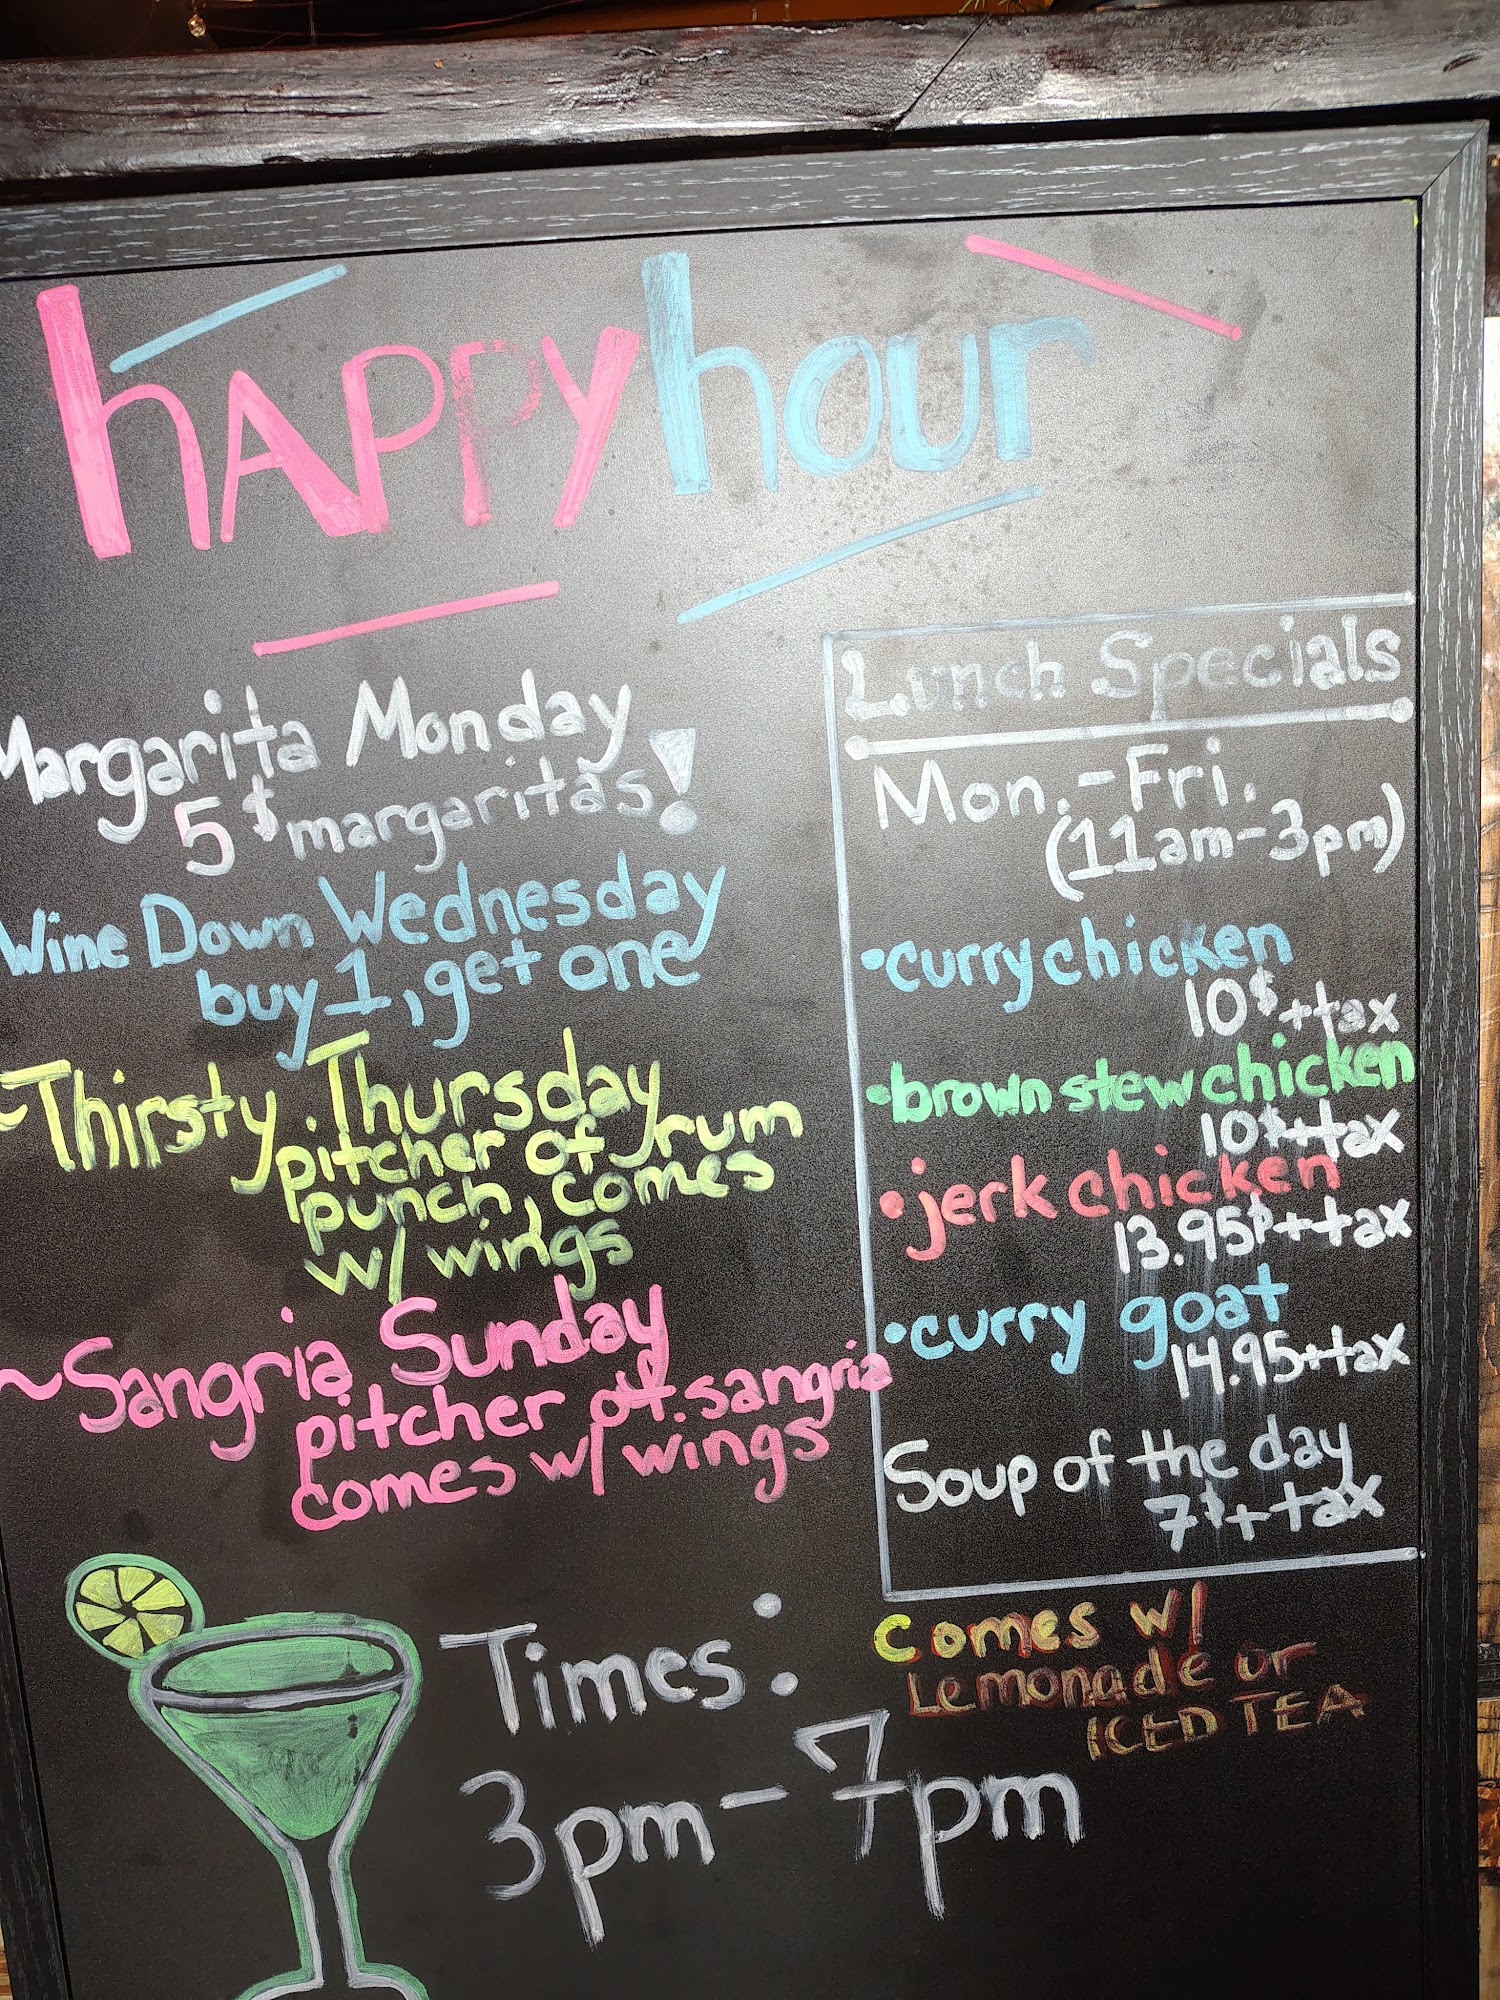 hAPPY hour
Margarita Monday
5$ margaritas!
Wine Down Wednesday
buy 1, get one
~Thirsty Thursday
pitcher of rum
punch, comes
w/ wings
~Sangria Sunday
pitcher of sangria
comes w/ wings
Times:
3pm-7pm
Lunch Specials
Mon.-Fri.
(11am-3pm)
•curry chicken
10$+tax
•brown stew chicken
10$+tax
•jerk chicken
13.95$+tax
•curry goat
14.95+tax
Soup of the day
7$+tax
comes w/
Lemonade or
ICED TEA